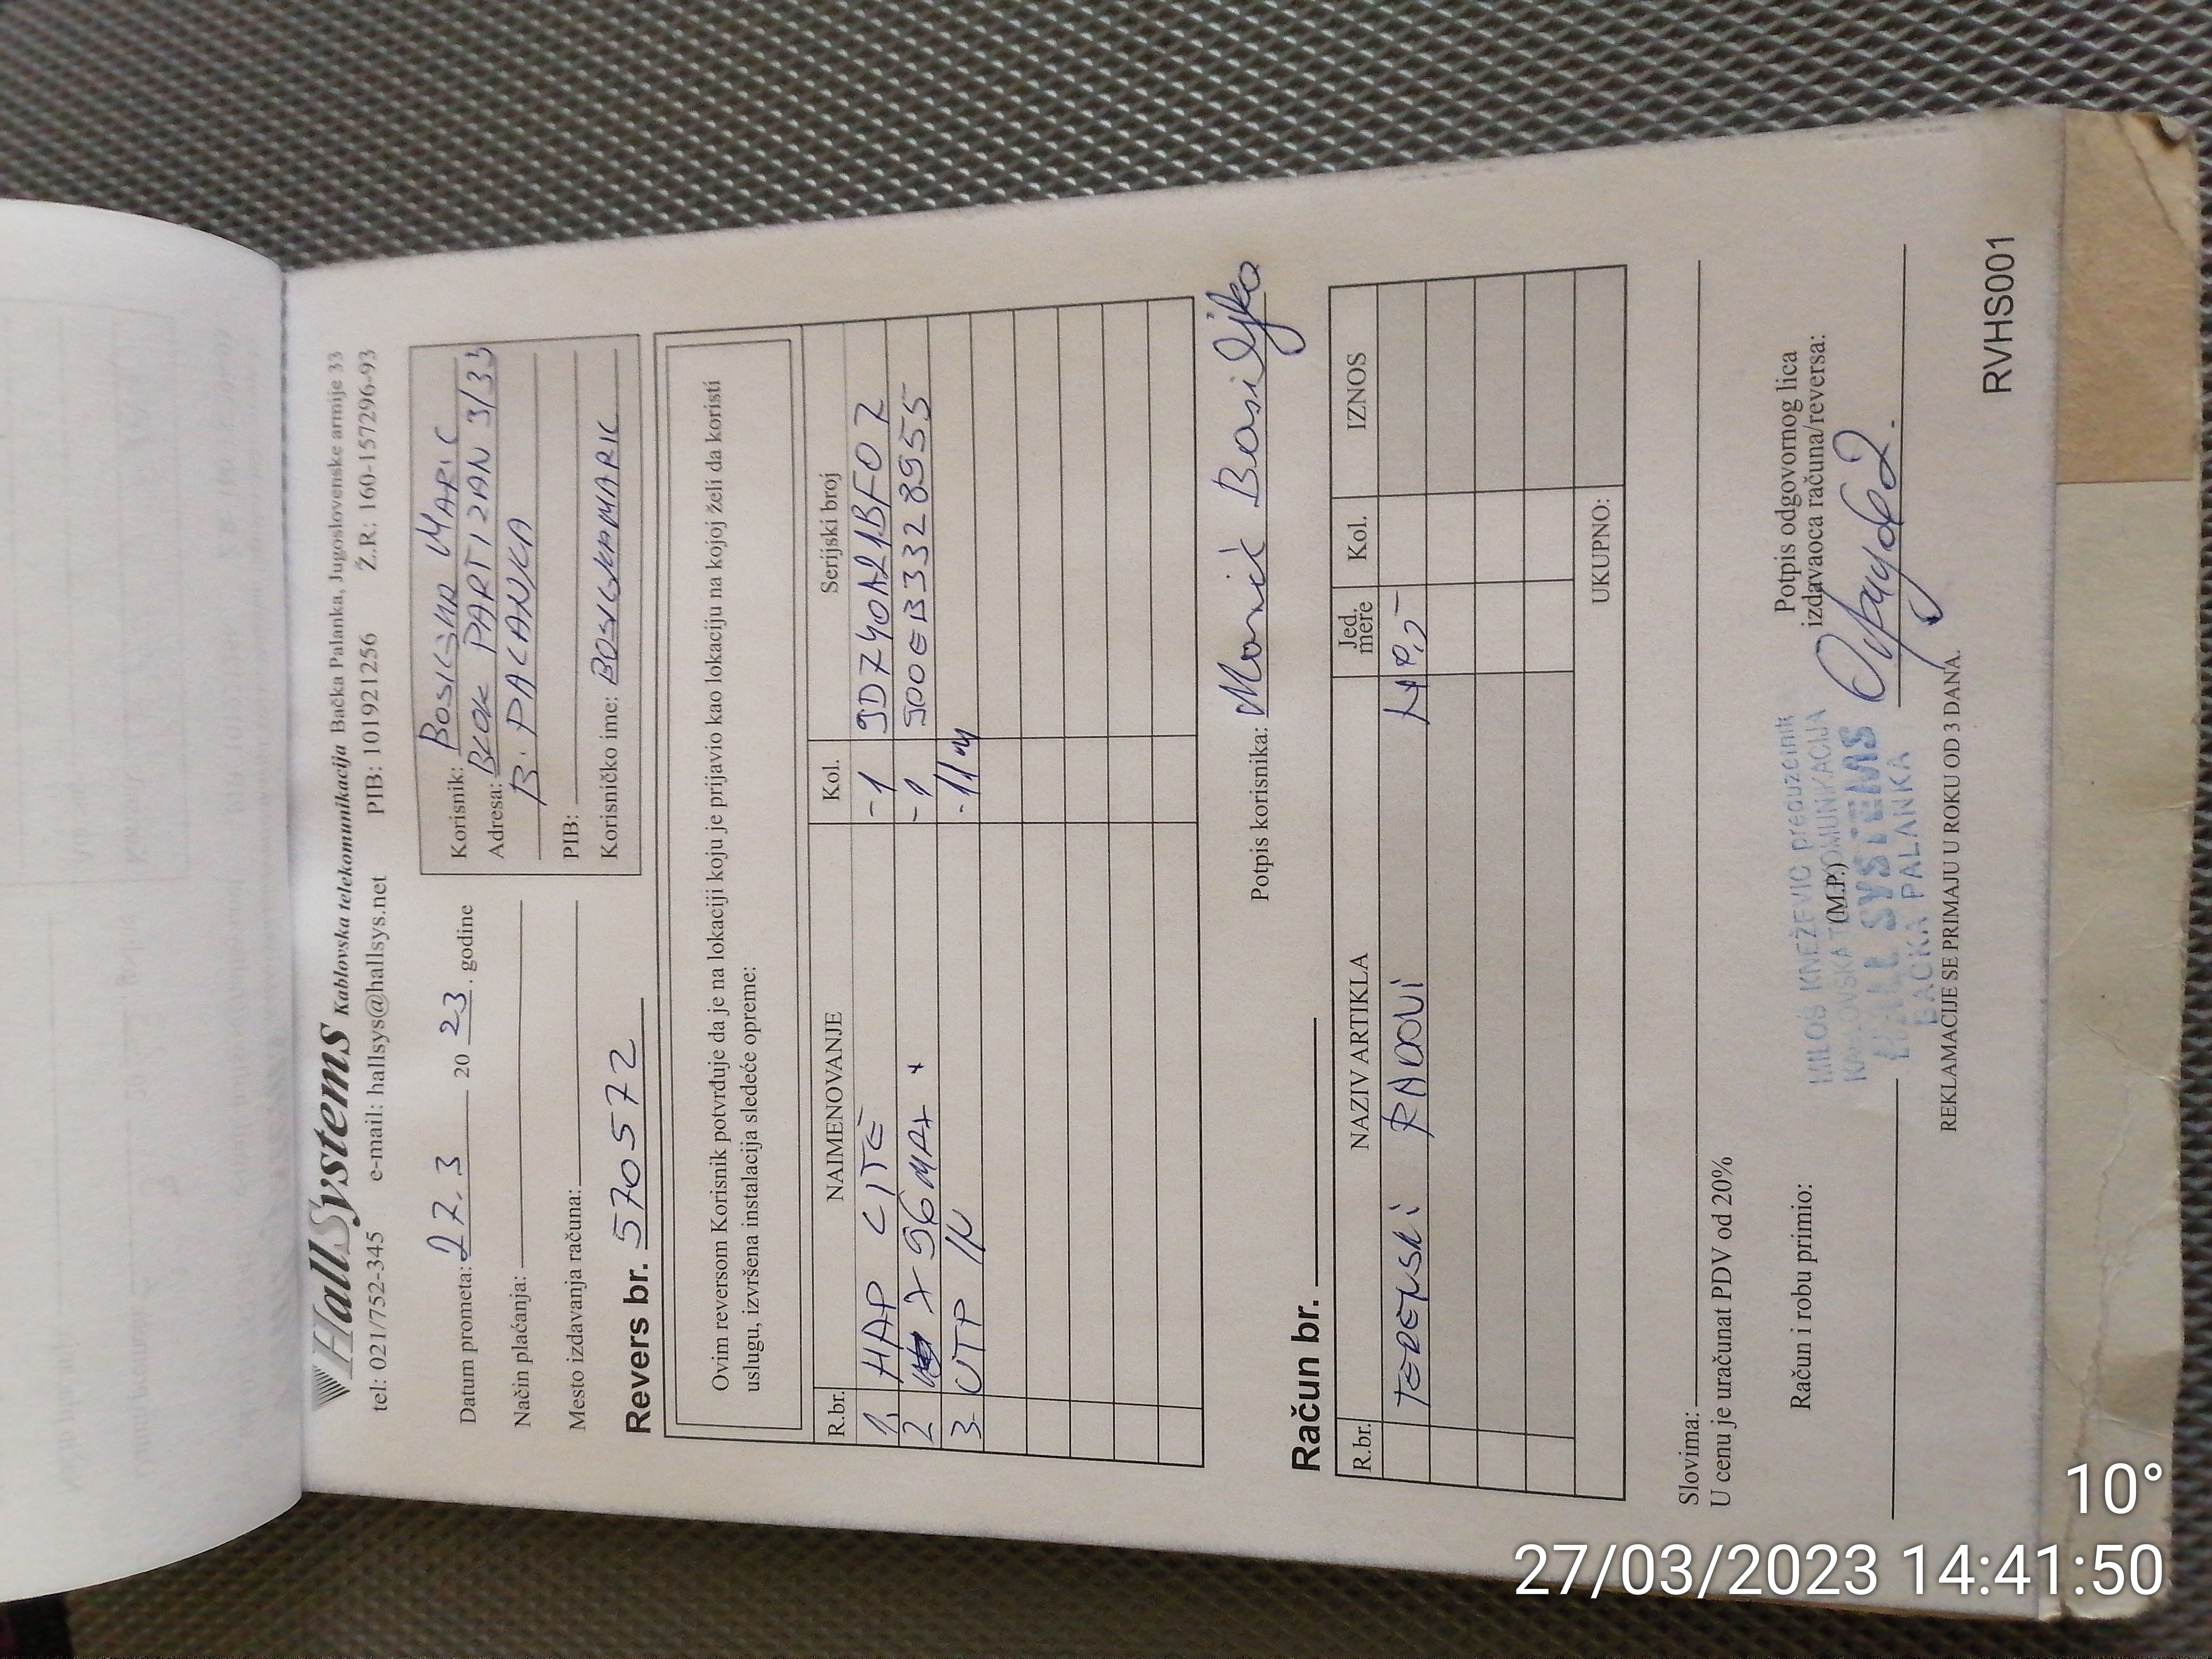 HallSystems Kablovska telekomunikacija Bačka Palanka, Jugoslovenske armije 33
tel: 021/752-345 e-mail: hallsys@hallsys.net PIB: 101921256 Ž.R.: 160-157296-93
Datum prometa: 27.3 20 23. godine
Način plaćanja:
Mesto izdavanja računa:
Korisnik: BOSILJKA MARIC
Adresa: BLOK PARTIZAN 3/33
B. PALANKA
PIB:
Korisničko ime: BOSILJKAMARIC
Revers br. 570572
Ovim reversom Korisnik potvrđuje da je na lokaciji koju je prijavio kao lokaciju na kojoj želi da koristi
uslugu, izvršena instalacija sledeće opreme:
R.br. NAIMENOVANJE Kol. Serijski broj
1. HAP LITE -1
2 X96MAX + -1
3. UTP -11m
Potpis korisnika: Marić Bosiljka
Račun br.
R.br. NAZIV ARTIKLA Jed. mere Kol. IZNOS
TERENSKI RADOVI
UKUPNO:
Slovima:
U cenu je uračunat PDV od 20%
Račun i robu primio:
(M.P.)
Potpis odgovornog lica
izdavaoca računa/reversa:
MILOŠ KNEŽEVIĆ preduzetnik
KABLOVSKA TELEKOMUNIKACIJA
HALL SYSTEMS
BAČKA PALANKA
REKLAMACIJE SE PRIMAJU U ROKU OD 3 DANA.
RVHS001
10°
27/03/2023 14:41:50